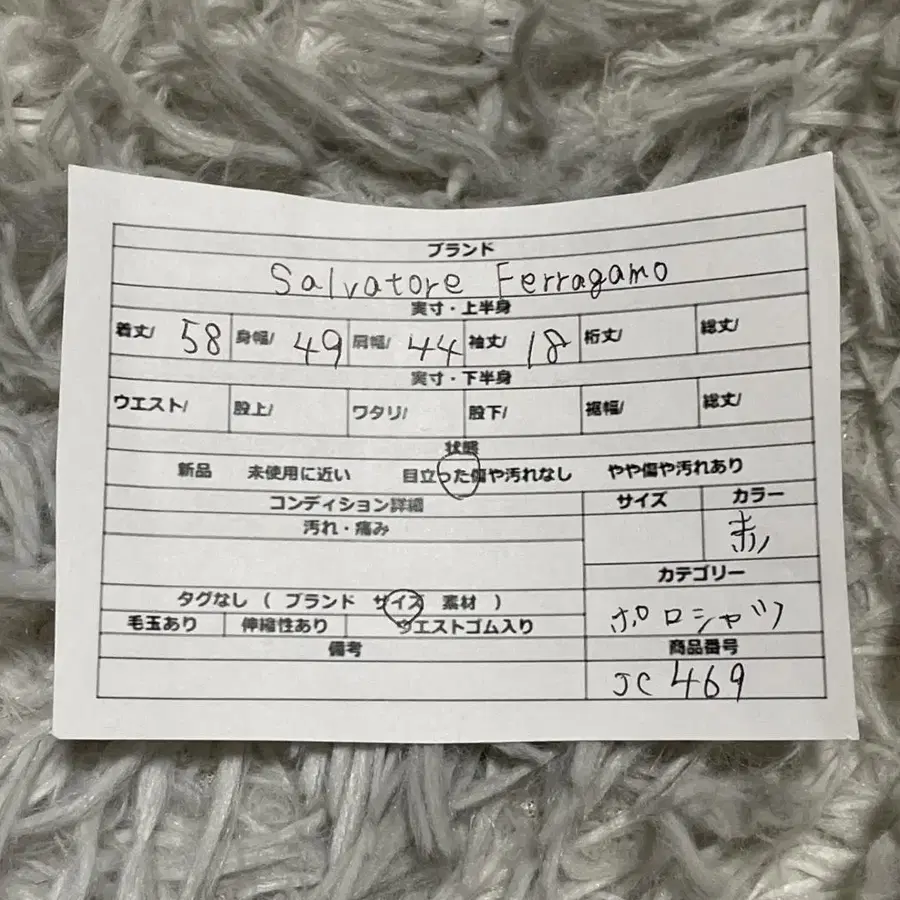 ブランド
Salvatore Ferragamo
実寸・上半身
着丈/ 58 身幅/ 49 肩幅/ 44 袖丈/ 18 裄丈/ 総丈/
実寸・下半身
ウエスト/ 股上/ ワタリ/ 股下/ 裾幅/ 総丈/
状態
新品 未使用に近い 目立った傷や汚れなし やや傷や汚れあり
コンディション詳細 サイズ カラー
汚れ・痛み 赤
カテゴリー
タグなし ( ブランド サイズ 素材 ) ポロシャツ
毛玉あり 伸縮性あり ウエストゴム入り
備考 商品番号
JC469